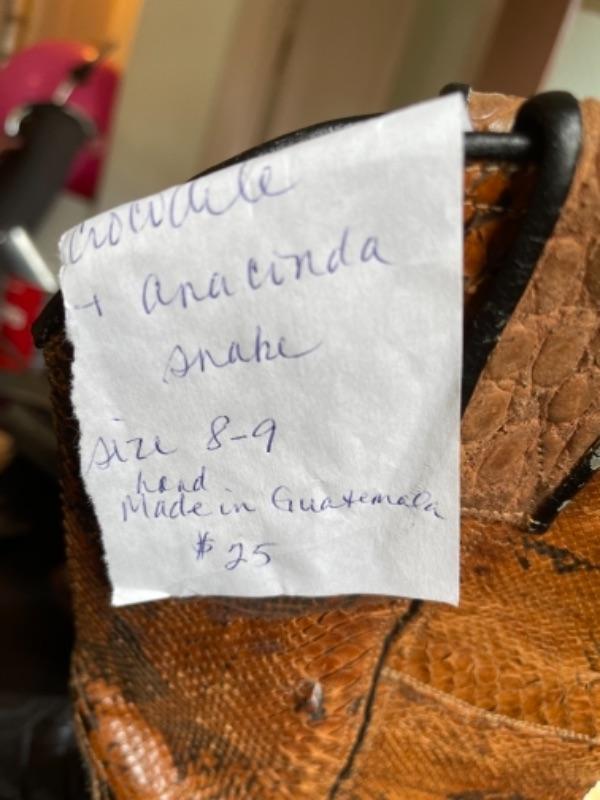 crocodile
+ anacinda
snake
size 8-9
hand
Made in Guatemala
$25